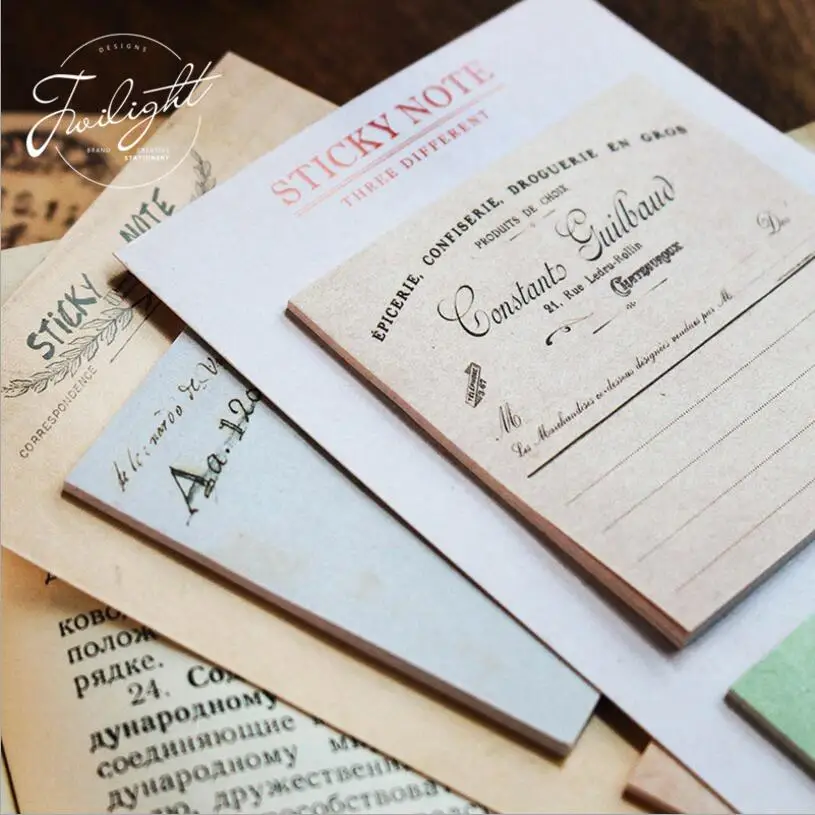 DESIGNS
Twilight
BRAND CREATIVE
STATIONERY
STICKY NOTE
THREE DIFFERENT
ÉPICERIE, CONFISERIE, DROGUERIE EN GROS
PRODUITS DE CHOIX
Constant Guilbaud
21, Rue Ledru-Rollin
CHATEAUROUX
Doit
TÉLÉPHONE
M
Les Marchandises ci-dessous désignées vendues par M
STICKY NOTE
CORRESPONDENCE
Aa. 120
ково
полож
рядке.
24. Сод
дународному
соединяющие
дународному ми
дружественн
способствова